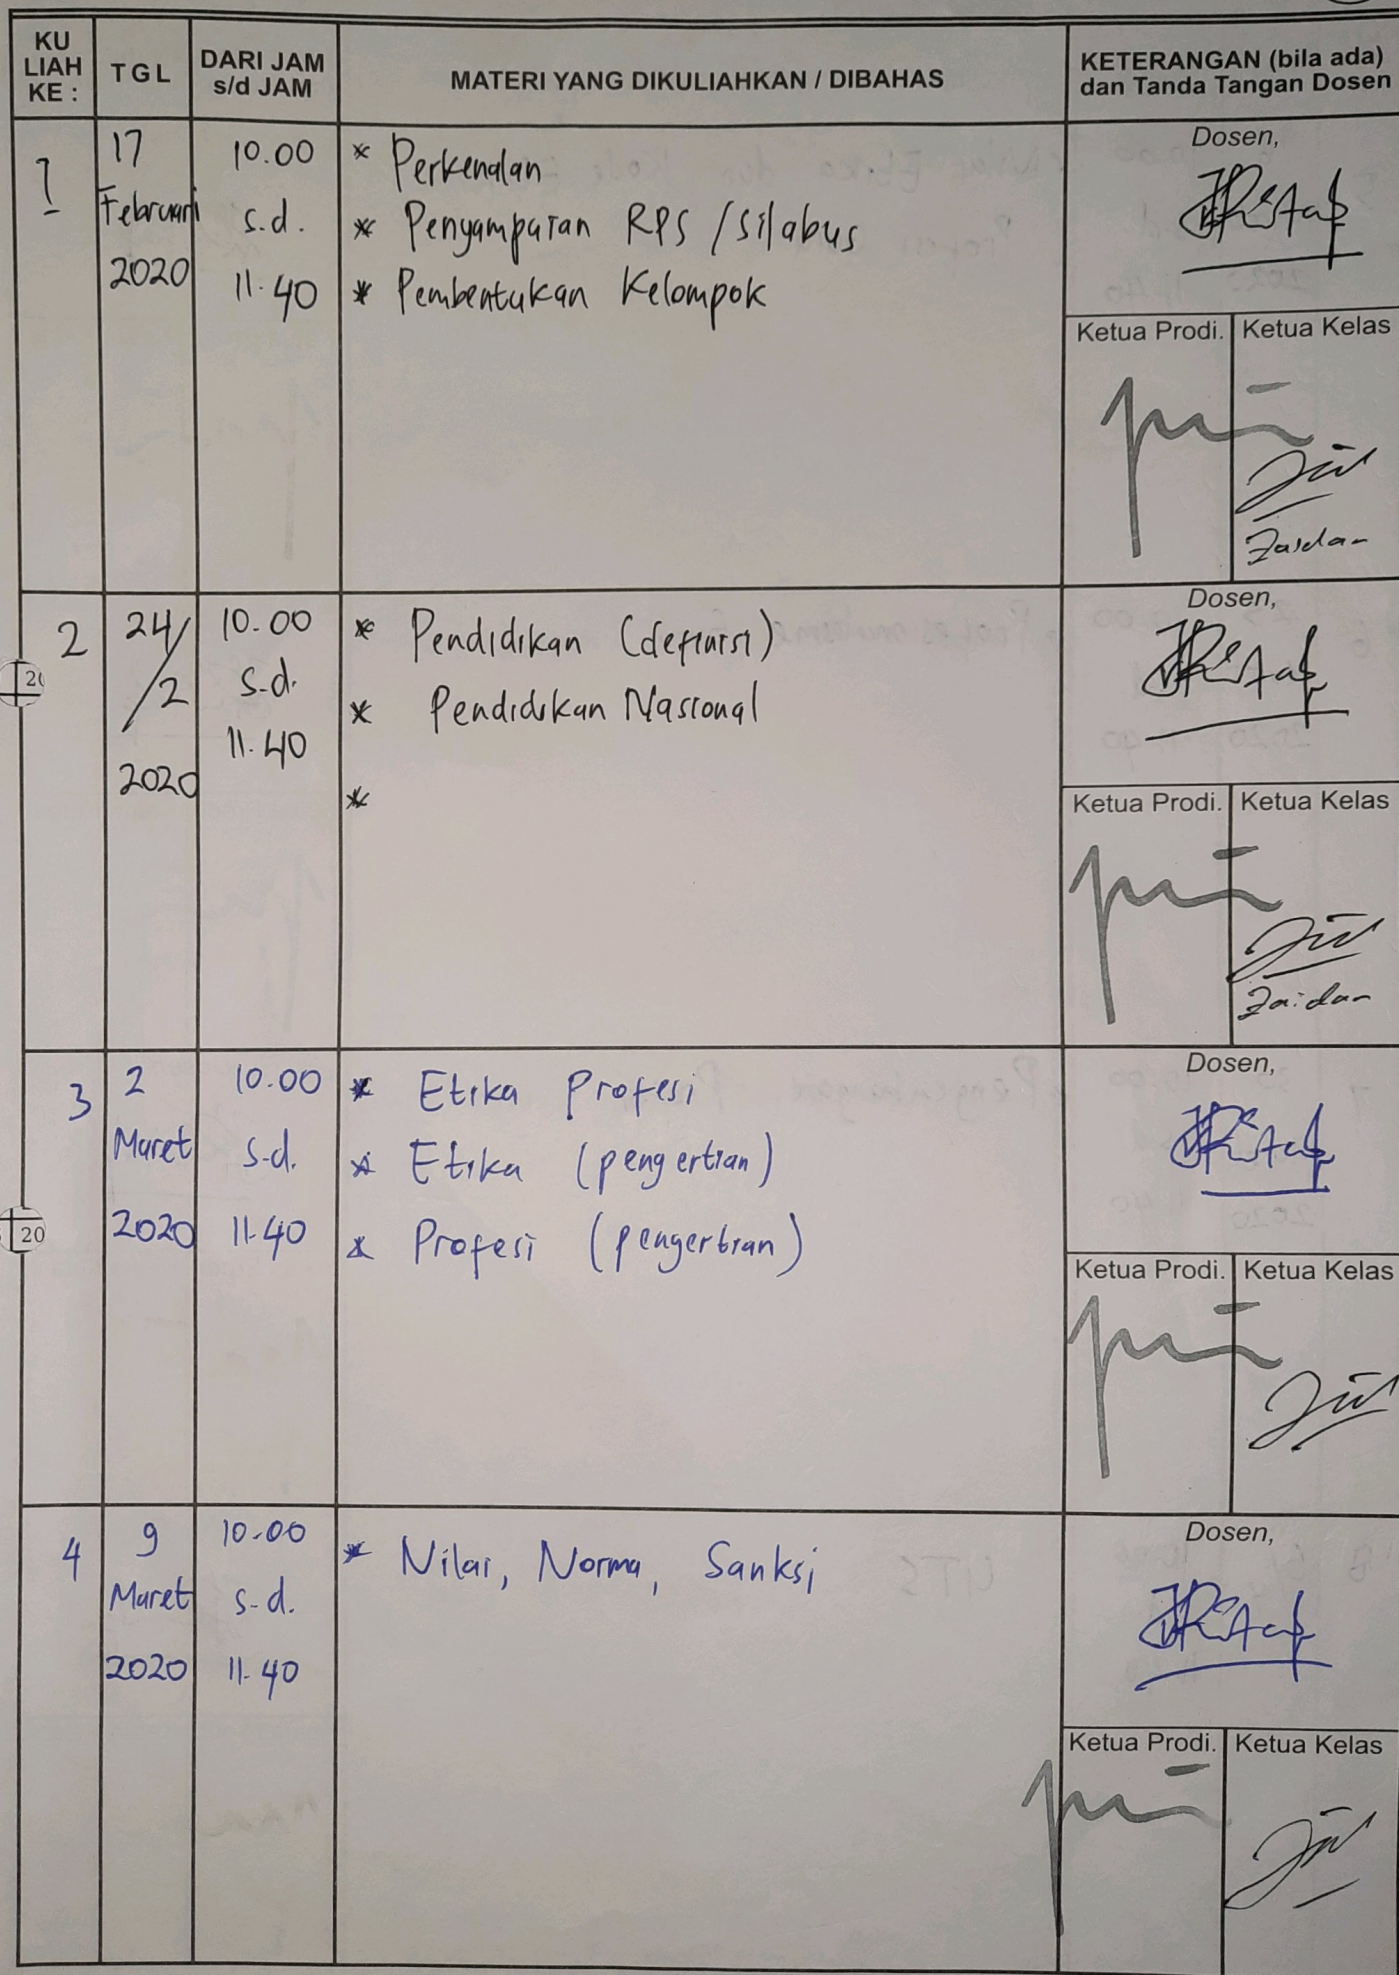 KU
LIAH
KE :
TGL
DARI JAM
s/d JAM
MATERI YANG DIKULIAHKAN / DIBAHAS
KETERANGAN (bila ada)
dan Tanda Tangan Dosen
1
17
Februari
2020
10.00
s.d.
11.40
* Perkenalan
* Penyampaian RPS / Silabus
* Pembentukan Kelompok
Dosen,
Ketua Prodi.
Ketua Kelas
Zaidan
2
24/
/2
2020
10.00
s.d.
11.40
* Pendidikan (definisi)
* Pendidikan Nasional
*
Dosen,
Ketua Prodi.
Ketua Kelas
Zaidan
20
3
2
Maret
2020
10.00
s.d.
11.40
* Etika Profesi
* Etika (pengertian)
* Profesi (pengertian)
Dosen,
Ketua Prodi.
Ketua Kelas
20
4
9
Maret
2020
10.00
s.d.
11.40
* Nilai, Norma, Sanksi
Dosen,
Ketua Prodi.
Ketua Kelas